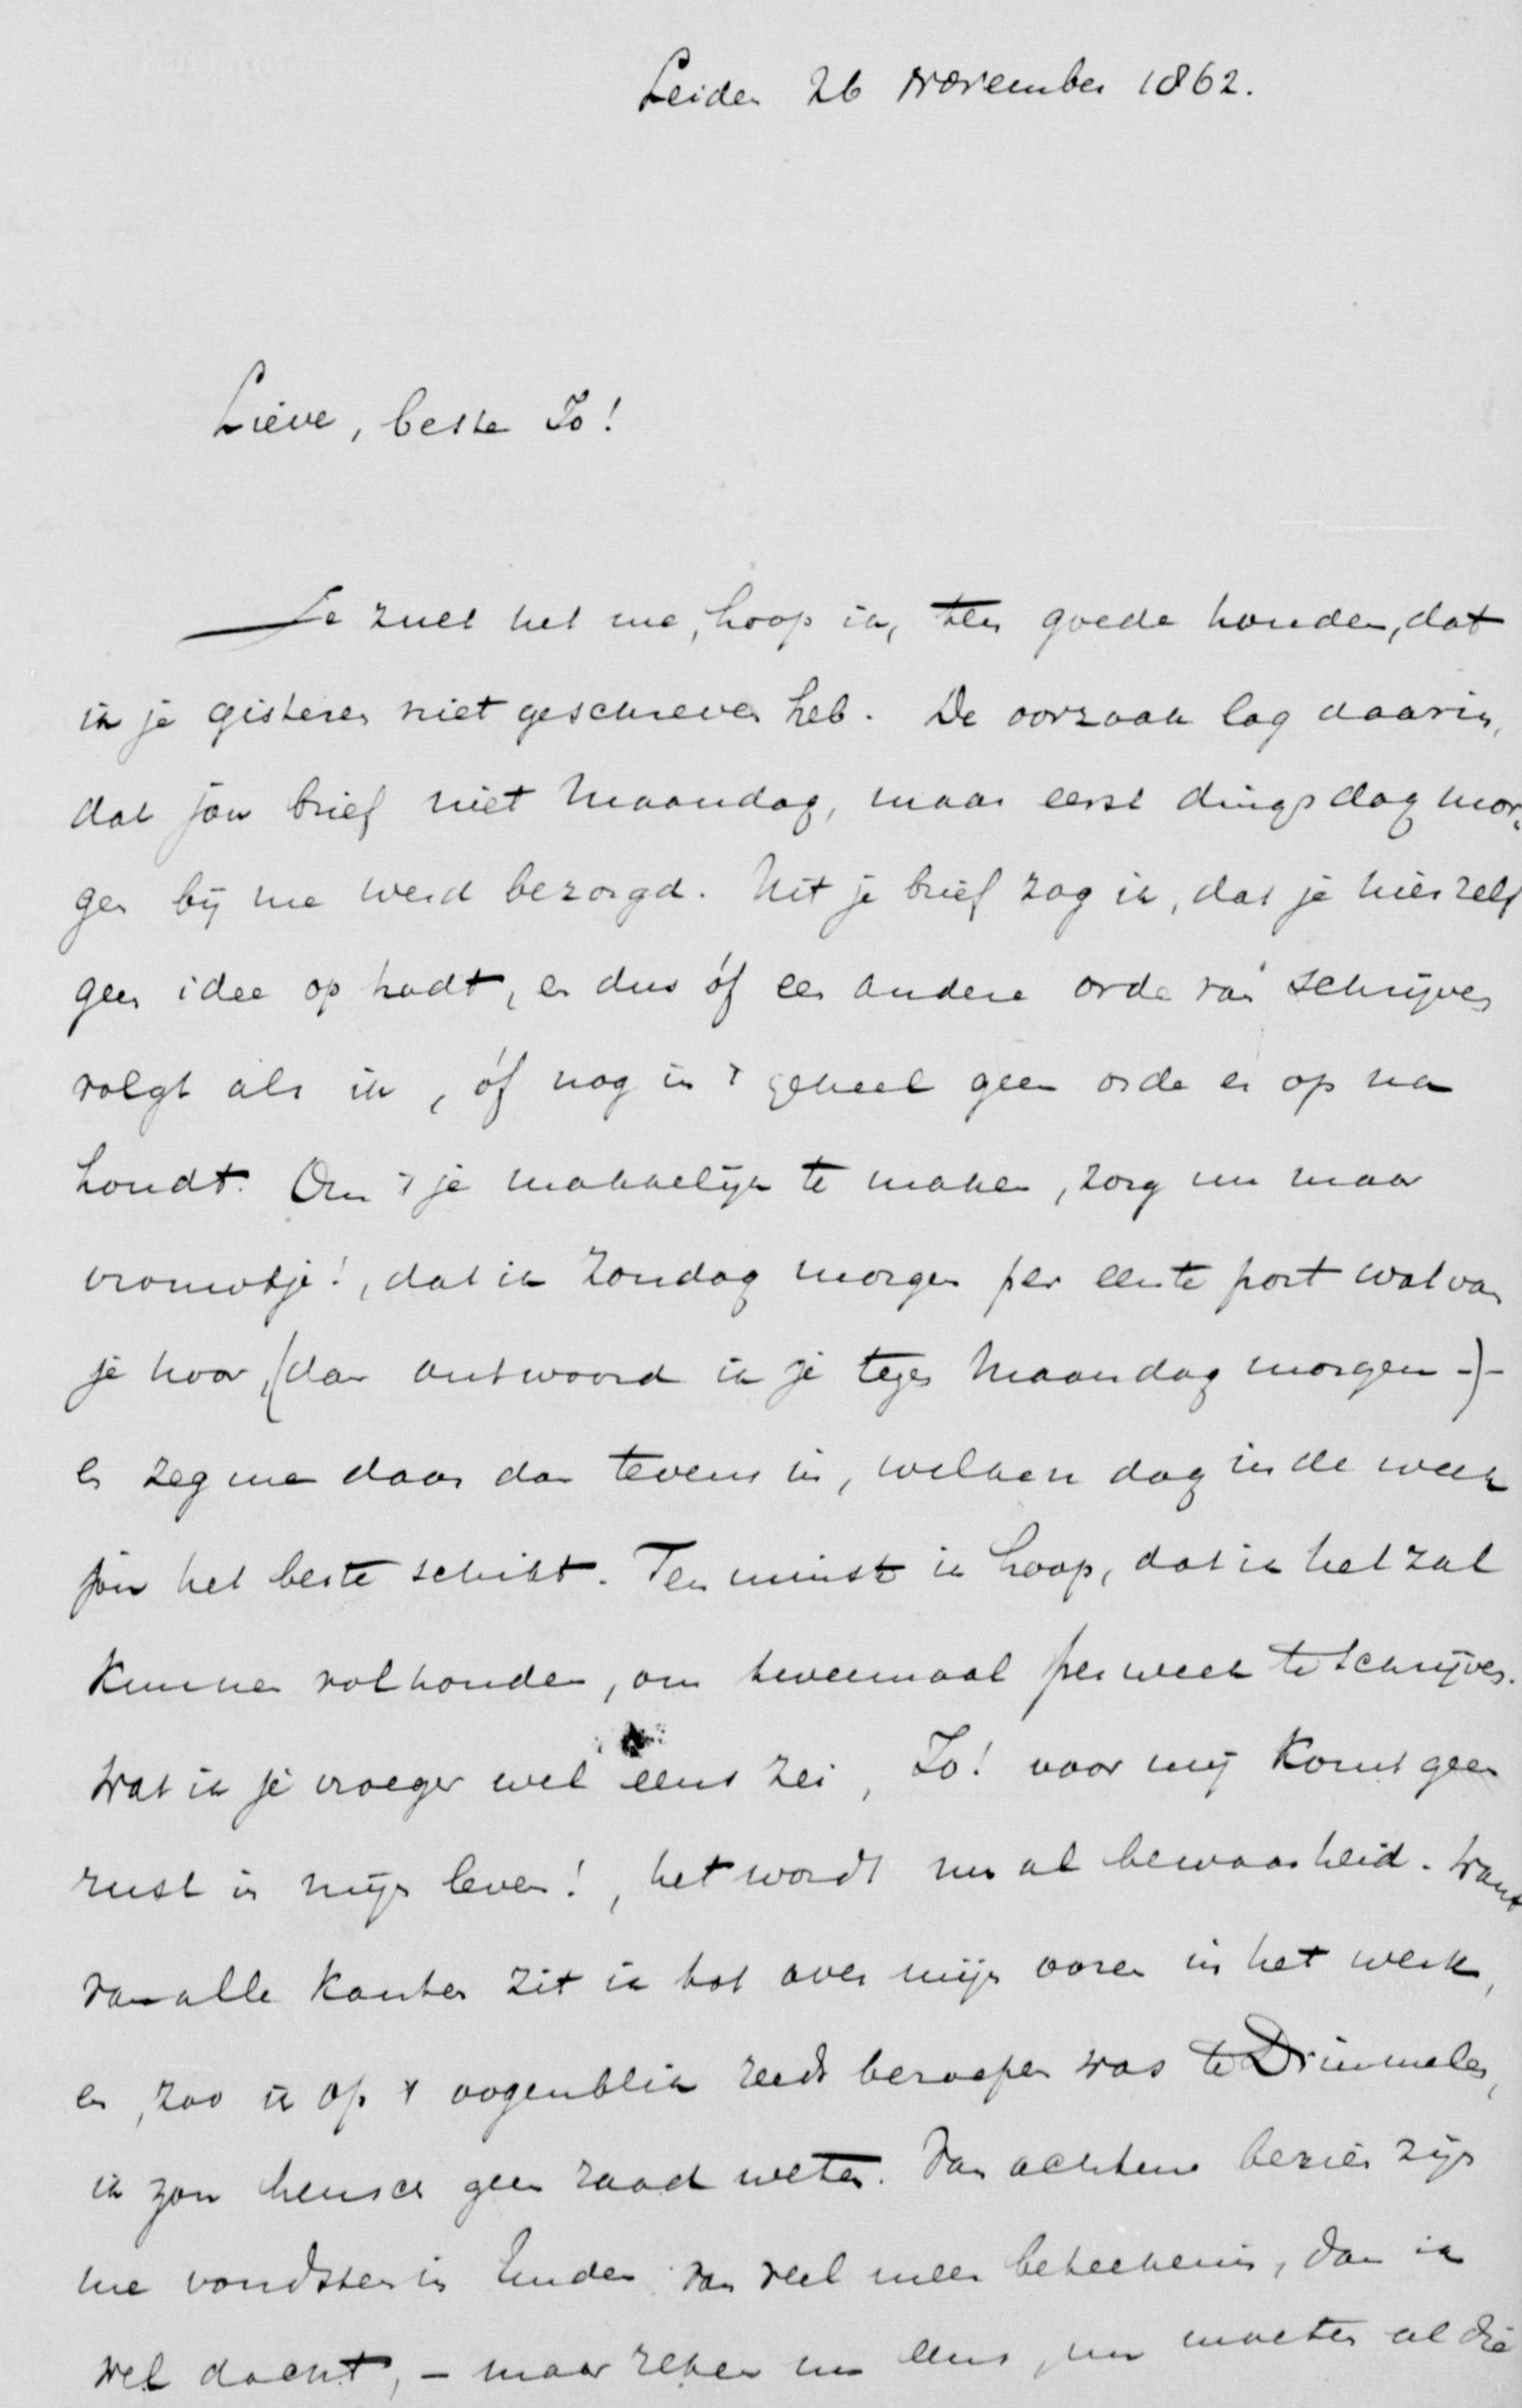 Leiden 26 November 1862.
Lieve, beste Jo!
Je zult het me, hoop ik, ten goede houden, dat
ik je gisteren niet geschreven heb. De oorzaak lag daarin,
dat jou brief niet Maandag, maar eerst dingsdag mor-
gen bij me werd bezorgd. Uit je brief zag ik, dat je hier zelf
geen idee op hadt, en dus óf een andere orde van schrijven
volgt als ik, óf nog in 't geheel geen orde er op na
houdt. Om 't je makkelijk te maken, zorg nu maar
vrouwtje!, dat ik Zondag morgen per eerste post wat van
je hoor, (dan antwoord ik je tegen Maandag morgen -) -
en zeg me daar dan tevens in, welken dag in de week
jou het beste schikt. Ten minste ik hoop, dat ik het zal
kunnen volhouden, om tweemaal per week te schrijven.
Wat ik je vroeger wel eens zei, Jo! voor mij komt geen
rust in mijn leven!, het wordt nu al bewaarheid. Want
van alle kanten zit ik tot over mijn ooren in het werk,
en, zoo ik op 't oogenblik reeds beroepen was te Drimmelen,
ik zou heusch geen raad weten. Van achteren bezien zijn
me vondsten in Emden van veel meer beteekenis, dan ik
wel dacht, - maar reken nu eens, nu moeten al die